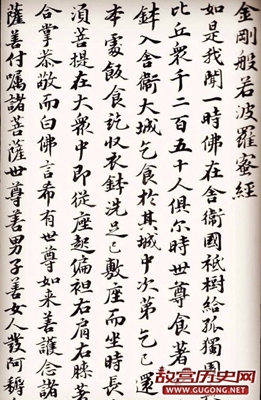 金剛般若波羅蜜經
如是我聞一時佛在舍衛國祇樹給孤獨園
比丘衆千二百五十人俱尒時世尊食著
鉢入舍衛大城乞食於其城中次第乞已還
本處飯食訖收衣鉢洗足已敷座而坐時長
須菩提在大衆中即從座起偏袒右肩右膝著
合掌恭敬而白佛言希有世尊如来善護念諸
薩善付囑諸菩薩世尊善男子善女人發阿耨
故宫历史网